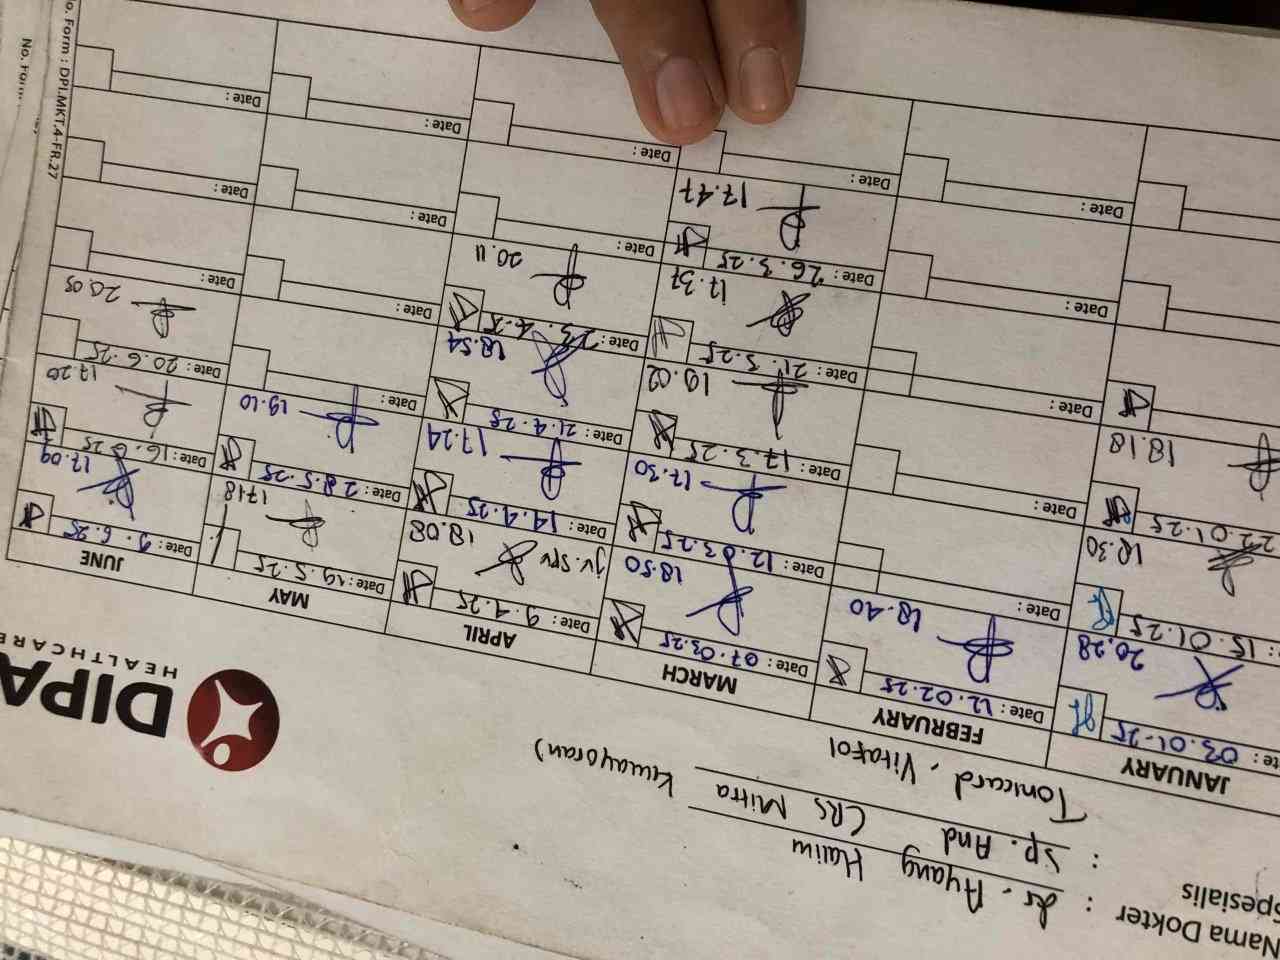 Nama Dokter : dr. Ayang Halim
Spesialis : Sp. And (RS Mitra Kemayoran)
Tonicard, Vitafol
DIPA
HEALTHCARE
JANUARY
FEBRUARY
MARCH
APRIL
MAY
JUNE
03.01-25
20.28
15.01.25
18.30
22.01.25
18.18
Date : 12.02.25
18.40
Date :
Date :
Date :
Date :
Date :
Date : 07.03.25
18.50
Date : 12.03.25
17.30
Date : 17.3.25
19.02
Date : 21.3.25
17.37
Date : 26.3.25
17.47
Date :
Date : 9.4.25
jv. spv
18.08
Date : 14.4.25
17.24
Date : 21.4.25
18.54
Date : 23.4.25
20.11
Date :
Date :
Date : 19.5.25
1718
Date : 28.5.25
19.10
Date :
Date :
Date :
Date :
Date : 9.6.25
17.09
Date : 16.6.25
17.20
Date : 20.6.25
20.05
Date :
Date :
Date :
No. Form : DPI.MKT.4-FR.27
No. Form